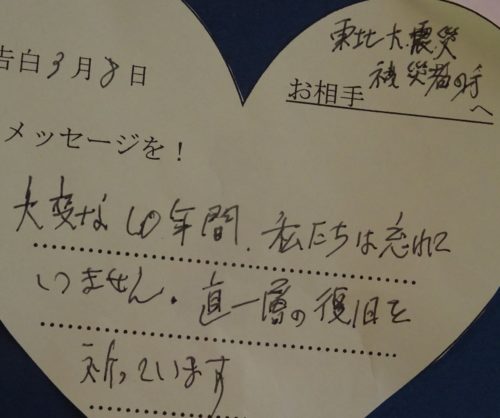 東北大震災
告白3月8日
お相手 被災者の手
へ
メッセージを!
大変な10年間、私たちは忘れて
いません。直一層の復旧を
祈っています